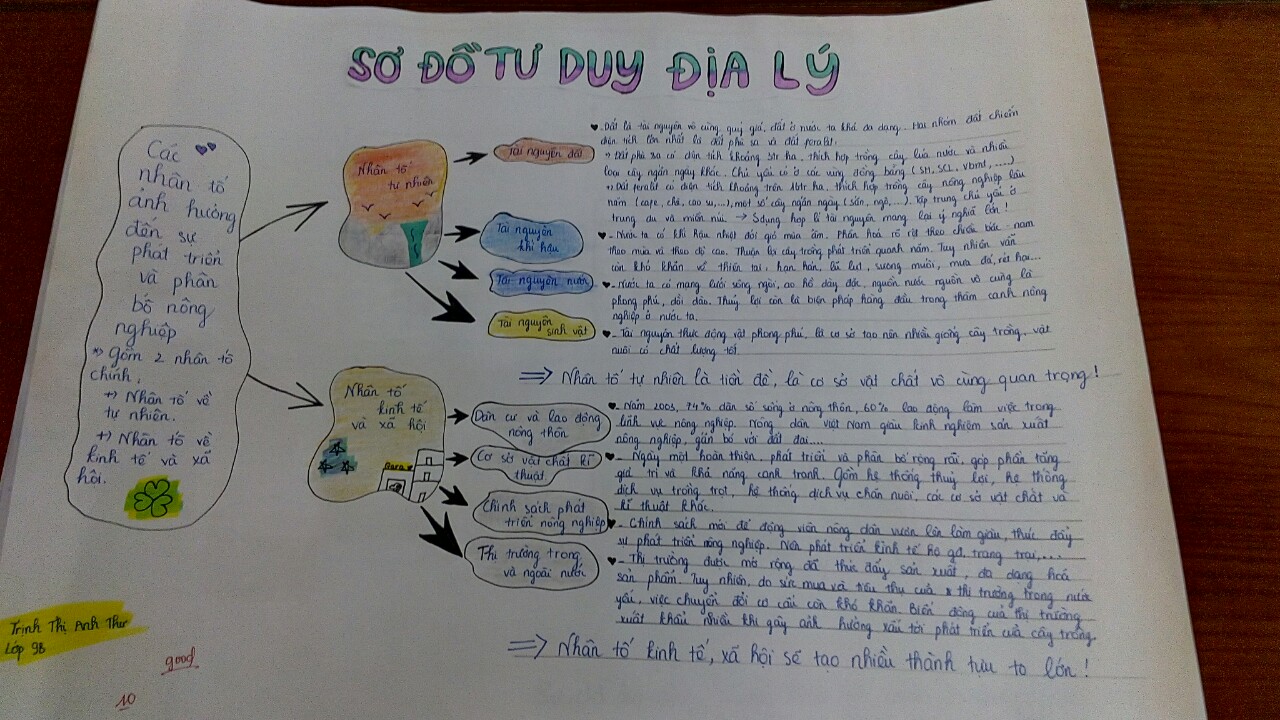 SƠ ĐỒ TƯ DUY ĐỊA LÝ
Các
nhân tố
ảnh hưởng
đến sự
phát triển
và phân
bố nông
nghiệp
=> Gồm 2 nhân tố
chính.
+) Nhân tố về
tự nhiên.
+) Nhân tố về
kinh tế và xã
hội.
Nhân tố
tự nhiên
Tài nguyên đất
- Đất là tài nguyên vô cùng quý giá, đất ở nước ta khá đa dạng. Hai nhóm đất chiếm
diện tích lớn nhất là đất phù sa và đất feralit.
+) Đất phù sa có diện tích khoảng 3tr ha, thích hợp trồng cây lúa nước và nhiều
loại cây ngắn ngày khác. Chủ yếu có ở các vùng đồng bằng (SH, SCL, VBmt, ....)
+) Đất feralit có diện tích khoảng trên 16tr ha, thích hợp trồng cây nông nghiệp lâu
năm (cafe, chè, cao su,...), một số cây ngắn ngày (sắn, ngô,...). Tập trung chủ yếu ở
trung du và miền núi. → Sdụng hợp lí tài nguyên mang lại ý nghĩa lớn!
Tài nguyên
khí hậu
- Nước ta có khí hậu nhiệt đới gió mùa ẩm. Phân hoá rõ rệt theo chiều bắc - nam
theo mùa và theo độ cao. Thuận lợi cây trồng phát triển quanh năm. Tuy nhiên vẫn
còn khó khăn về thiên tai, hạn hán, lũ lụt, sương muối, mưa đá, rét hại...
Tài nguyên nước
- Nước ta có mạng lưới sông ngòi, ao hồ dày đặc, nguồn nước nguồn vô cùng là
phong phú, dồi dào. Thuỷ lợi còn là biện pháp hàng đầu trong thâm canh nông
nghiệp ở nước ta.
Tài nguyên
sinh vật
- Tài nguyên thực động vật phong phú, là cơ sở tạo nên nhiều giống cây trồng, vật
nuôi có chất lượng tốt.
=> Nhân tố tự nhiên là tiền đề, là cơ sở vật chất vô cùng quan trọng!
Nhân tố
kinh tế
và xã hội
Dân cư và lao động
nông thôn
- Năm 2003, 74% dân số sống ở nông thôn, 60% lao động làm việc trong
lĩnh vực nông nghiệp. Nông dân Việt Nam giàu kinh nghiệm sản xuất
nông nghiệp, gắn bó với đất đai....
Cơ sở vật chất kĩ
thuật
- Ngày một hoàn thiện, phát triển và phân bố rộng rãi, góp phần tăng
giá trị và khả năng cạnh tranh. Gồm hệ thống thuỷ lợi, hệ thống
dịch vụ trồng trọt, hệ thống dịch vụ chăn nuôi, các cơ sở vật chất và
kĩ thuật khác.
Chính sách phát
triển nông nghiệp
- Chính sách mới để động viên nông dân vươn lên làm giàu, thúc đẩy
sự phát triển nông nghiệp. Nên phát triển kinh tế hộ gđ, trang trại,...
Thị trường trong
và ngoài nước
- Thị trường được mở rộng đã thúc đẩy sản xuất, đa dạng hoá
sản phẩm. Tuy nhiên, do sức mua và tiêu thụ của thị trường trong nước
yếu, việc chuyển đổi cơ cấu còn khó khăn. Biến động của thị trường
xuất khẩu nhiều khi gây ảnh hưởng xấu tới phát triển của cây trồng
=> Nhân tố kinh tế, xã hội sẽ tạo nhiều thành tựu to lớn!
Trịnh Thị Anh Thư
Lớp 9B
good
10